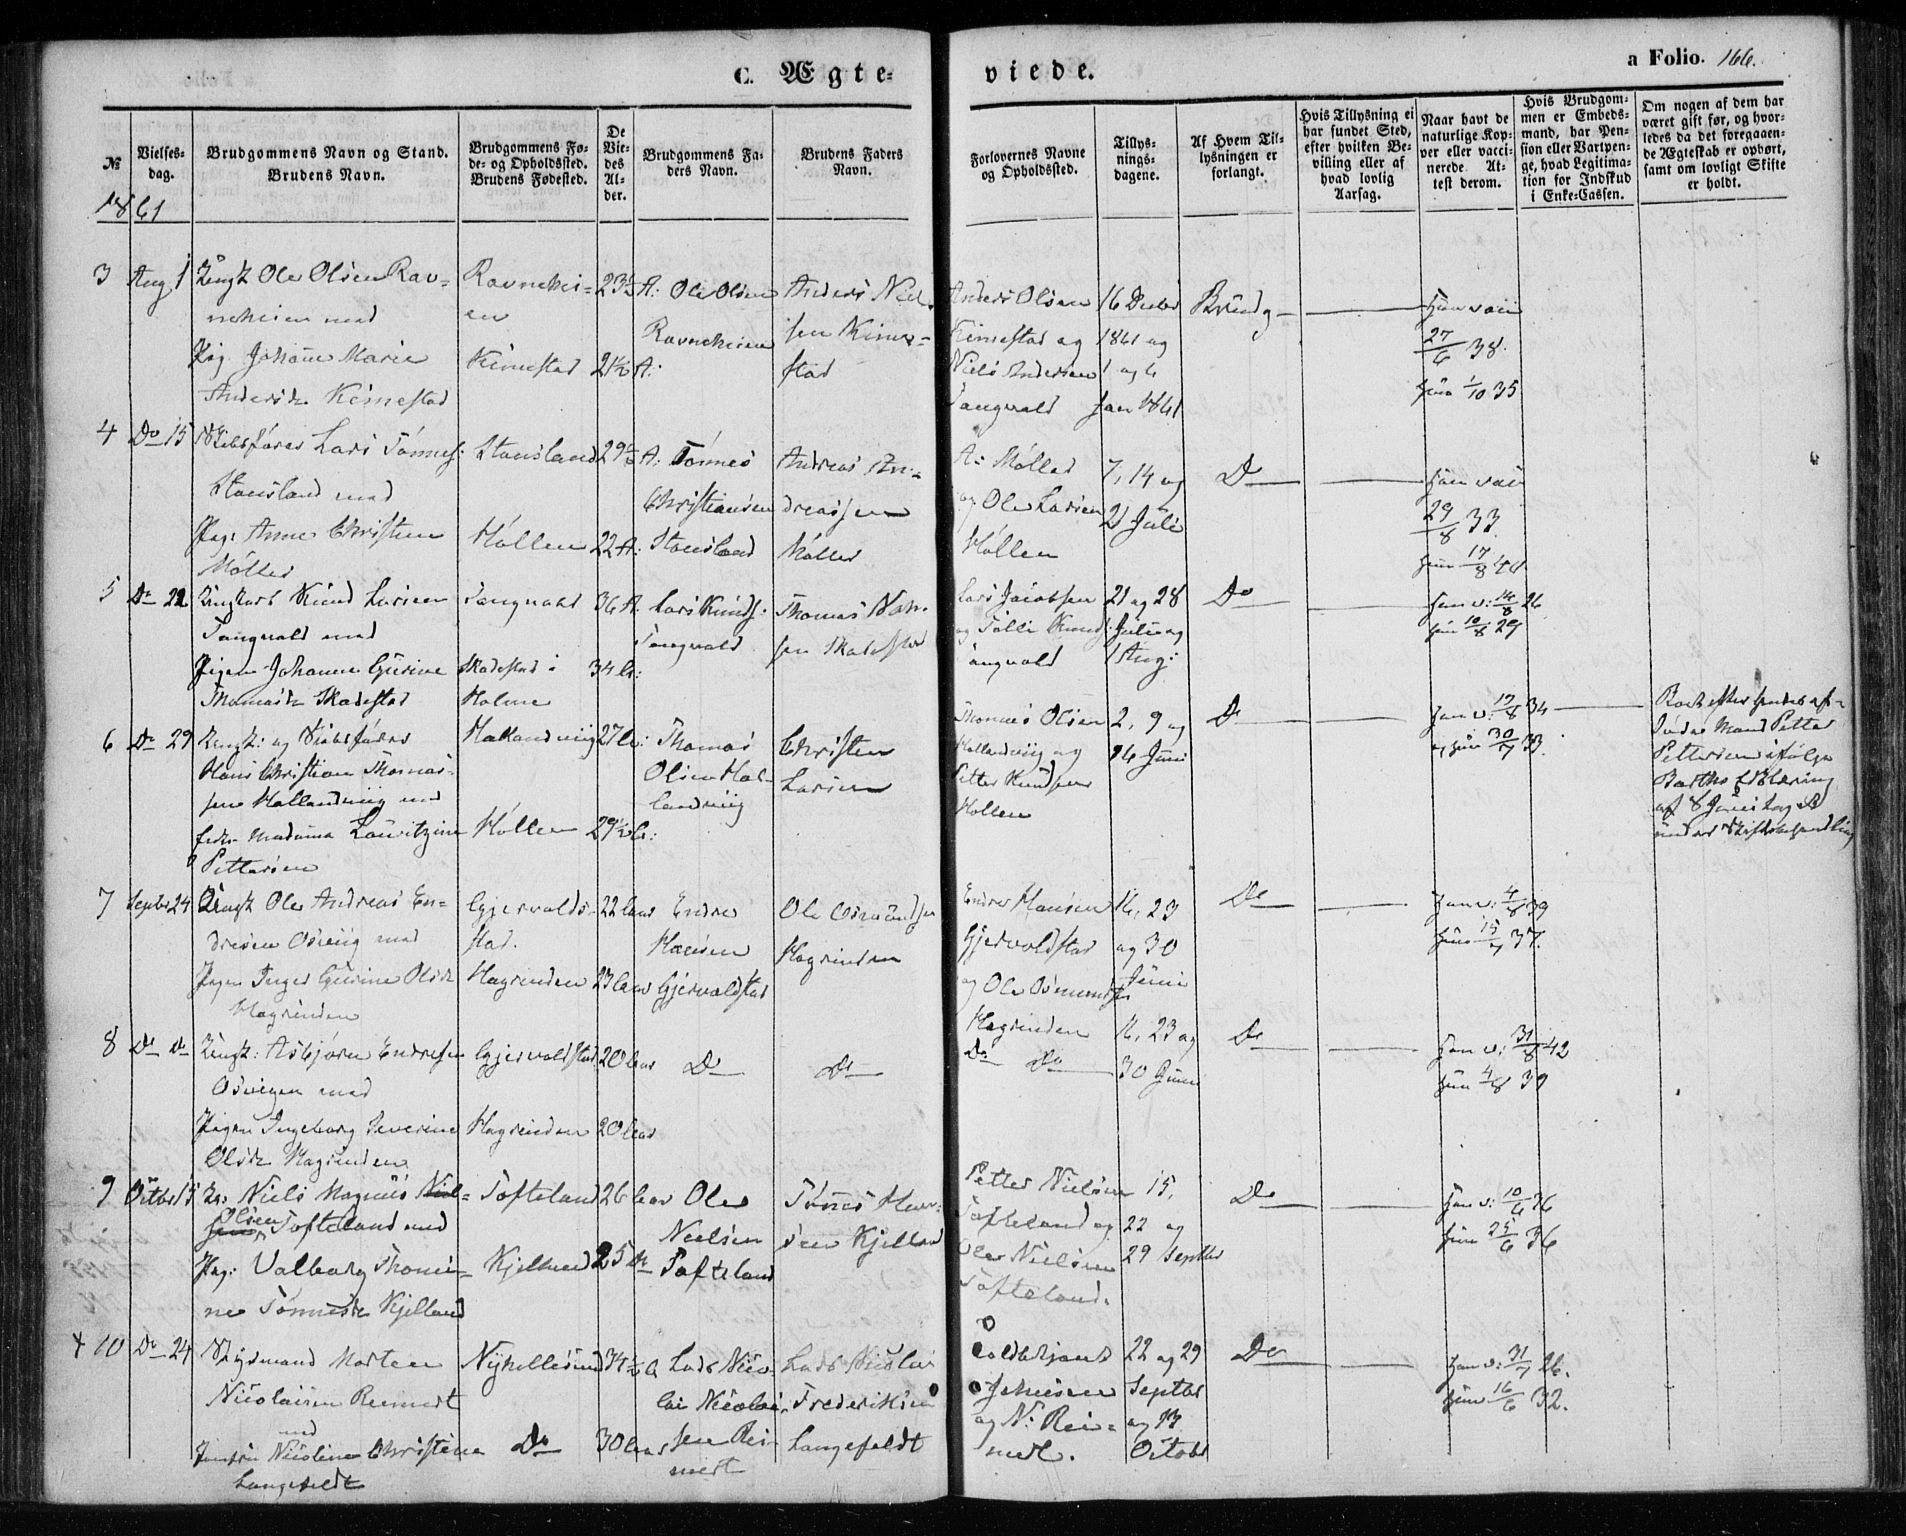 C. Ægte-
viede.
a Folio. 166.
№
Vielses-
dag.
Brudgommens Navn og Stand.
Brudens Navn.
Brudgommens Fø-
de- og Opholdssted.
Brudens Fødested.
De
Vie-
des
Al-
der.
Brudgommens Fa-
ders Navn.
Brudens Faders
Navn.
Forlovernes Navne
og Opholdssted.
Tillys-
nings-
dagene.
Af Hvem Til-
lysningen er
forlangt.
Hvis Tillysning ei
har fundet Sted,
efter hvilken Be-
villing eller af
hvad lovlig
Aarsag.
Naar havt de
naturlige Kop-
per eller vacci-
nerede At-
test derom.
Hvis Brudgom-
men er Embeds-
mand, har Pen-
sion eller Vartpen-
ge, hvad Legitima-
tion for Indskud
i Enke-Cassen.
Om nogen af dem har
været gift før, og hvor-
ledes da det foregaaen-
de Ægteskab er ophørt,
samt om lovligt Skifte
er holdt.
1861
3
Aug 1
Ungk Ole Olsen Rav-
neheien med
Pig. Johanne Marie
Andersd. Keimestad
Ravnehei-
en
Keimestad
23½ A:
21½ A:
Ole Olsen
Ravneheien
Anders Niel-
sen Keime-
stad
Anders Olsen
Keimestad og
Niels Andersen
Tangvald
16 Decbr
1861 og
1 og 6
Jan 1861
Brudg
Han vac
27/6 38.
Hun 1/10 35
4
Do 15
Skibsfører Lars Tønnes:
Stausland med
Pig: Anne Christine
Møller
Stausland
Høllen
29½ A:
22 A:
Tønnes
Christiansen
Stausland
Andreas An-
dreassen
Møller
A: Møller
og Ole Larsen
Høllen
7, 14 og
21 Juli
Do
Han vac
29/8 33.
Hun 17/8 40
5
Do 22
Ungkarl Knud Larsen
Tangvald med
Pigen Johanne Gurine
Thomasd. Skadestad
Tangvald
Skadestad i
Holme
36 A.
34 A:
Lars Knuds:
Tangvald
Thomas
sen Skadestad
Lars Jacobsen
og Tolli Knuds:
Tangvald
21 og 28
Juli og
1 Aug:
Do
Han v: 14/8 26
Hun 10/8 29
6
Do 29
Ungk: og Skibsfører
Hans Christian Thomas-
sen Hallandviig med
Enke Madame Lauritzine
Pettersen
Hallandviig
Høllen
27 A:
29½ A:
Thomas
Olsen Hal-
landviig
Christen
Larsen
Thomas Olsen
Hallandviig og
Petter Knudsen
Høllen
2, 9 og
16 Juni
Do
Han v: 19/8 34
og Hun 30/7 33.
Mand Petter
Pettersen ifølge
Erklæring
af 8 Juni
under Skiftebehandling
7
Septbr 24
Ungk Ole Andreas En-
dresen Osviig med
Pigen Inger Gurine Olsd.
Hagrinden
Gjervolds-
stad.
Hagrinden
22 Aar
23 Aar
Endre
Hansen
Gjervoldstad
Ole Osmundsen
Hagrinden
Endres Hansen
Gjervoldstad
og Ole Osmundsen
Hagrinden
16, 23
og 30
Juni
Do
Han v: 4/8 39
Hun 15/7 37.
8
Do Do
Ungk: Asbjørn Endresen
Osvigen med
Pigen Ingeborg Severine
Olsd. Hagrinden
Gjervoldstad
Hagrinden
20 Aar
20 Aar
Do
Do
Do Do
16, 23 og
30 Juni
Do
Han v: 31/8 42
Hun 4/8 39
9
Octbr 15
Niels Magnus Niel-
sen Olsen Tofteland med
Pig: Valborg Thomi-
ne Tønnesd. Kjelland
Tofteland
Kjelland
26 Aar
25 Do
Ole
Nielsen
Tofteland
Tønnes
sen Kjelland
Petter Nielsen
Tofteland og
Ole Nielsen
Tofteland.
15,
22 og
29 Septbr
Do
Han v: 10/6 36
Hun 25/6 36
10
Do 24
Morten
Nicolaisen Reimert
med
Jomfru Nicoline Christine
Langefeldt
Nyhellesund
Do
34½ A
30 Aar
Lars Nico-
lai Nicolai-
sen Rei-
mert
Lars Nicolai
Frederiksen
Langefeldt
Johnsen
og N: Rei-
mert.
22 og 29
Septbr
og 13
Octobr
Do
Han v: 31/7 26.
Hun 16/6 32.